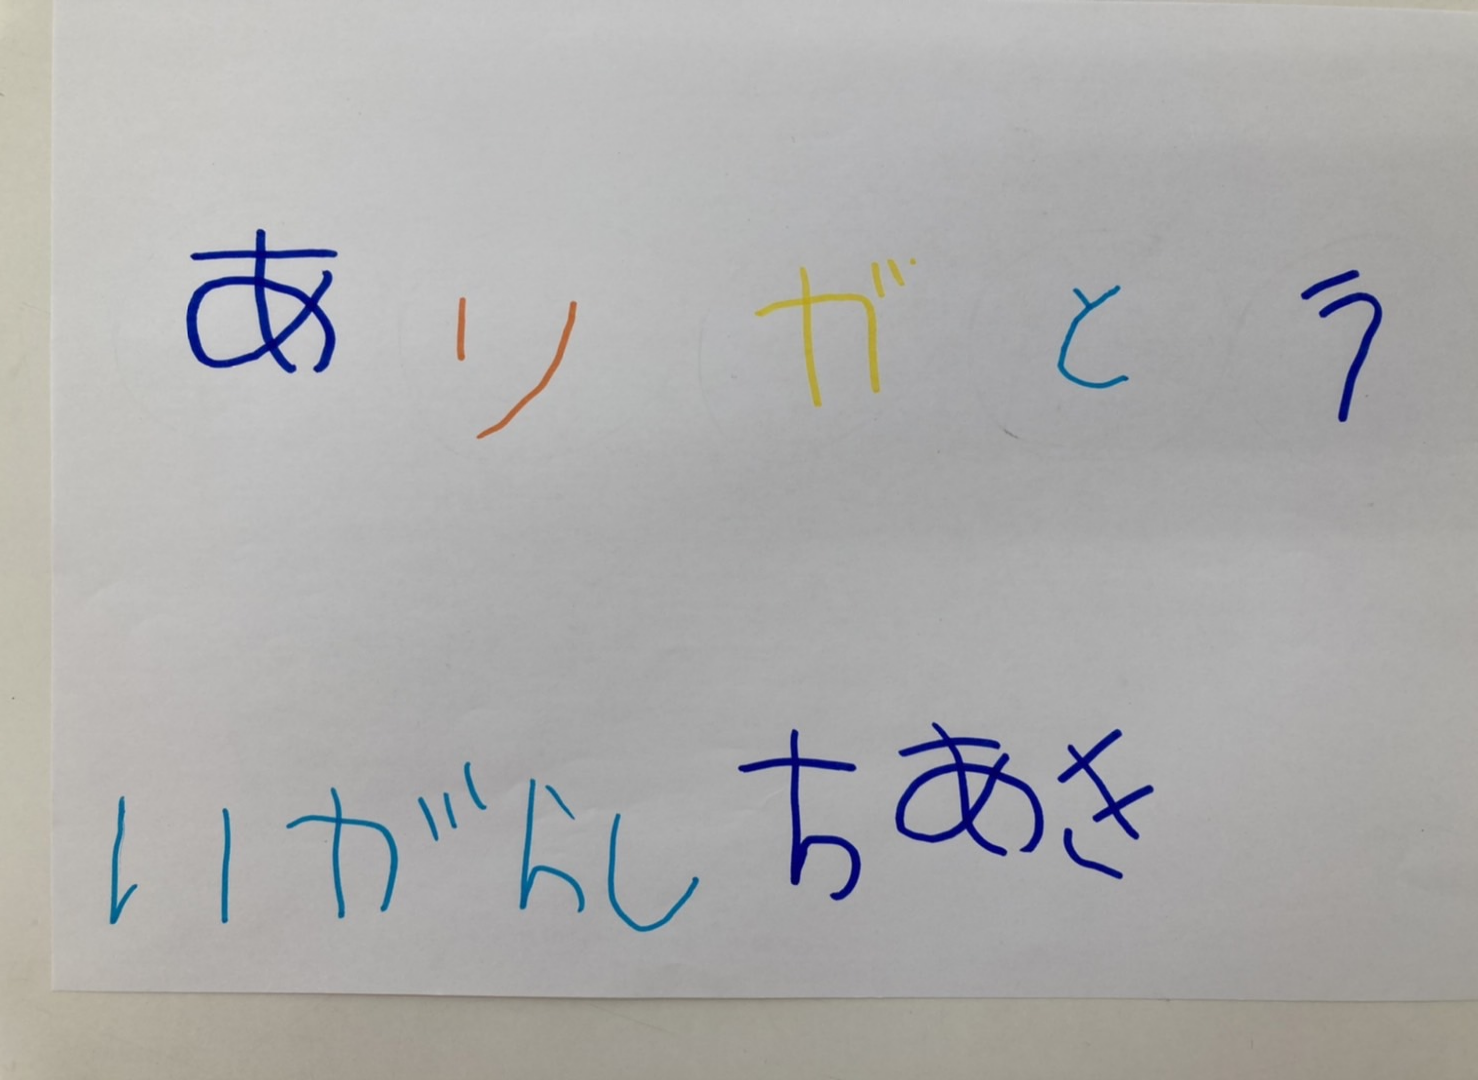 ありがとう
いがらし ちあき